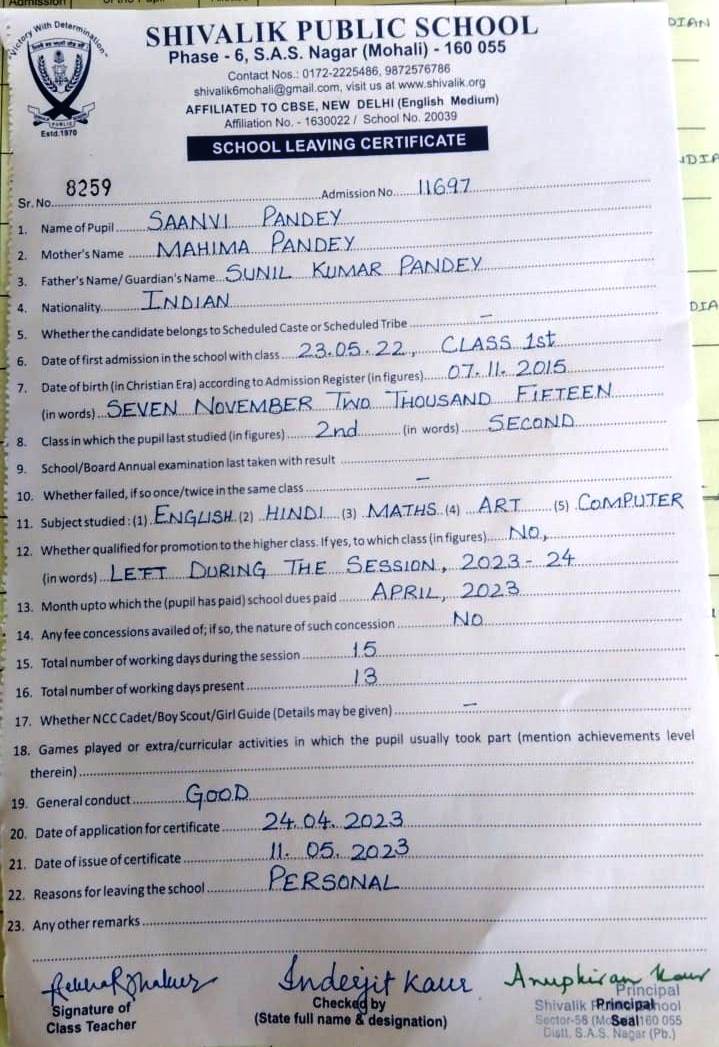 Admission
DIAN
"Victory With Determination"
PUBLIC
Estd.1970
SHIVALIK PUBLIC SCHOOL
Phase - 6, S.A.S. Nagar (Mohali) - 160 055
Contact Nos.: 0172-2225486, 9872576786
shivalik6mohali@gmail.com, visit us at www.shivalik.org
AFFILIATED TO CBSE, NEW DELHI (English Medium)
Affiliation No. - 1630022 / School No. 20039
SCHOOL LEAVING CERTIFICATE
Sr. No. 8259 Admission No. 11697
1. Name of Pupil SAANVI PANDEY
2. Mother's Name MAHIMA PANDEY
3. Father's Name/ Guardian's Name SUNIL KUMAR PANDEY
4. Nationality INDIAN
5. Whether the candidate belongs to Scheduled Caste or Scheduled Tribe –
6. Date of first admission in the school with class 23.05.22, CLASS 1st
7. Date of birth (in Christian Era) according to Admission Register (in figures) 07.11.2015
(in words) SEVEN NOVEMBER TWO THOUSAND FIFTEEN
8. Class in which the pupil last studied (in figures) 2nd (in words) SECOND
9. School/Board Annual examination last taken with result
10. Whether failed, if so once/twice in the same class –
11. Subject studied : (1) ENGLISH (2) HINDI (3) MATHS (4) ART (5) COMPUTER
12. Whether qualified for promotion to the higher class. If yes, to which class (in figures) NO,
(in words) LEFT DURING THE SESSION, 2023-24
13. Month upto which the (pupil has paid) school dues paid APRIL, 2023
14. Any fee concessions availed of; if so, the nature of such concession NO
15. Total number of working days during the session 15
16. Total number of working days present 13
17. Whether NCC Cadet/Boy Scout/Girl Guide (Details may be given) –
18. Games played or extra/curricular activities in which the pupil usually took part (mention achievements level
therein)
19. General conduct GOOD
20. Date of application for certificate 24.04.2023
21. Date of issue of certificate 11.05.2023
22. Reasons for leaving the school PERSONAL
23. Any other remarks
Inderjit Kaur
Anupkiran Kaur
Signature of
Class Teacher
Checked by
(State full name & designation)
Principal
Seal
Principal
Shivalik Public School
Sector-56 (Mohali) 160 055
Distt. S.A.S. Nagar (Pb.)